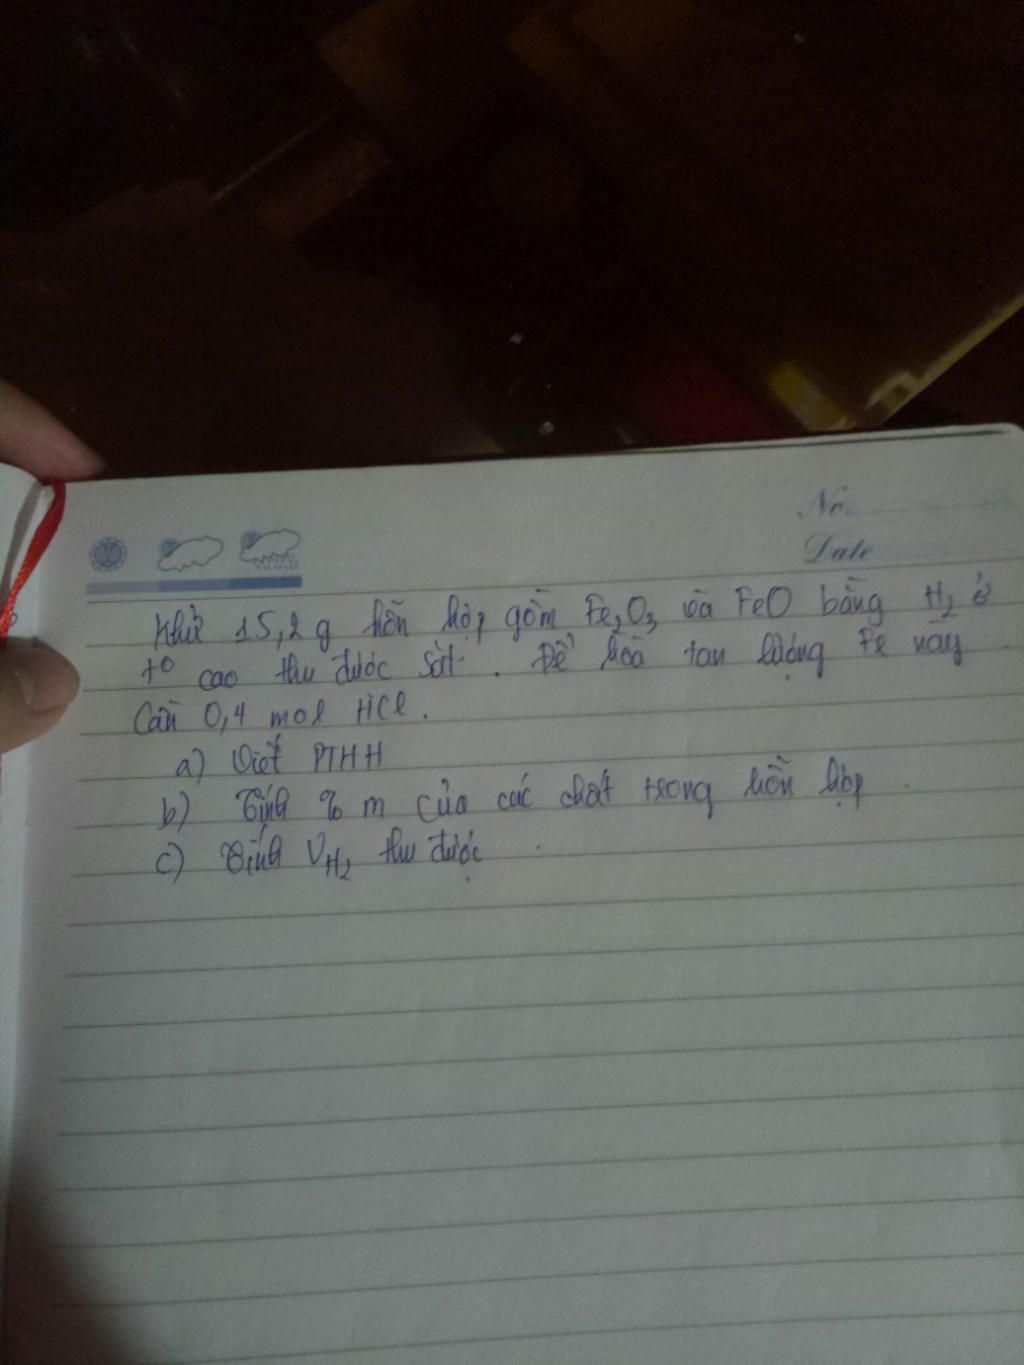 No.
Date
Khử 15,2 g hỗn hợp gồm Fe₂O₃ và FeO bằng H₂ ở
t⁰ cao thu được sắt. Để hòa tan lượng Fe này
Cần 0,4 mol HCl.
a) Viết PTHH
b) Tính % m của các chất trong hỗn hợp.
c) Tính V_H₂ thu được.